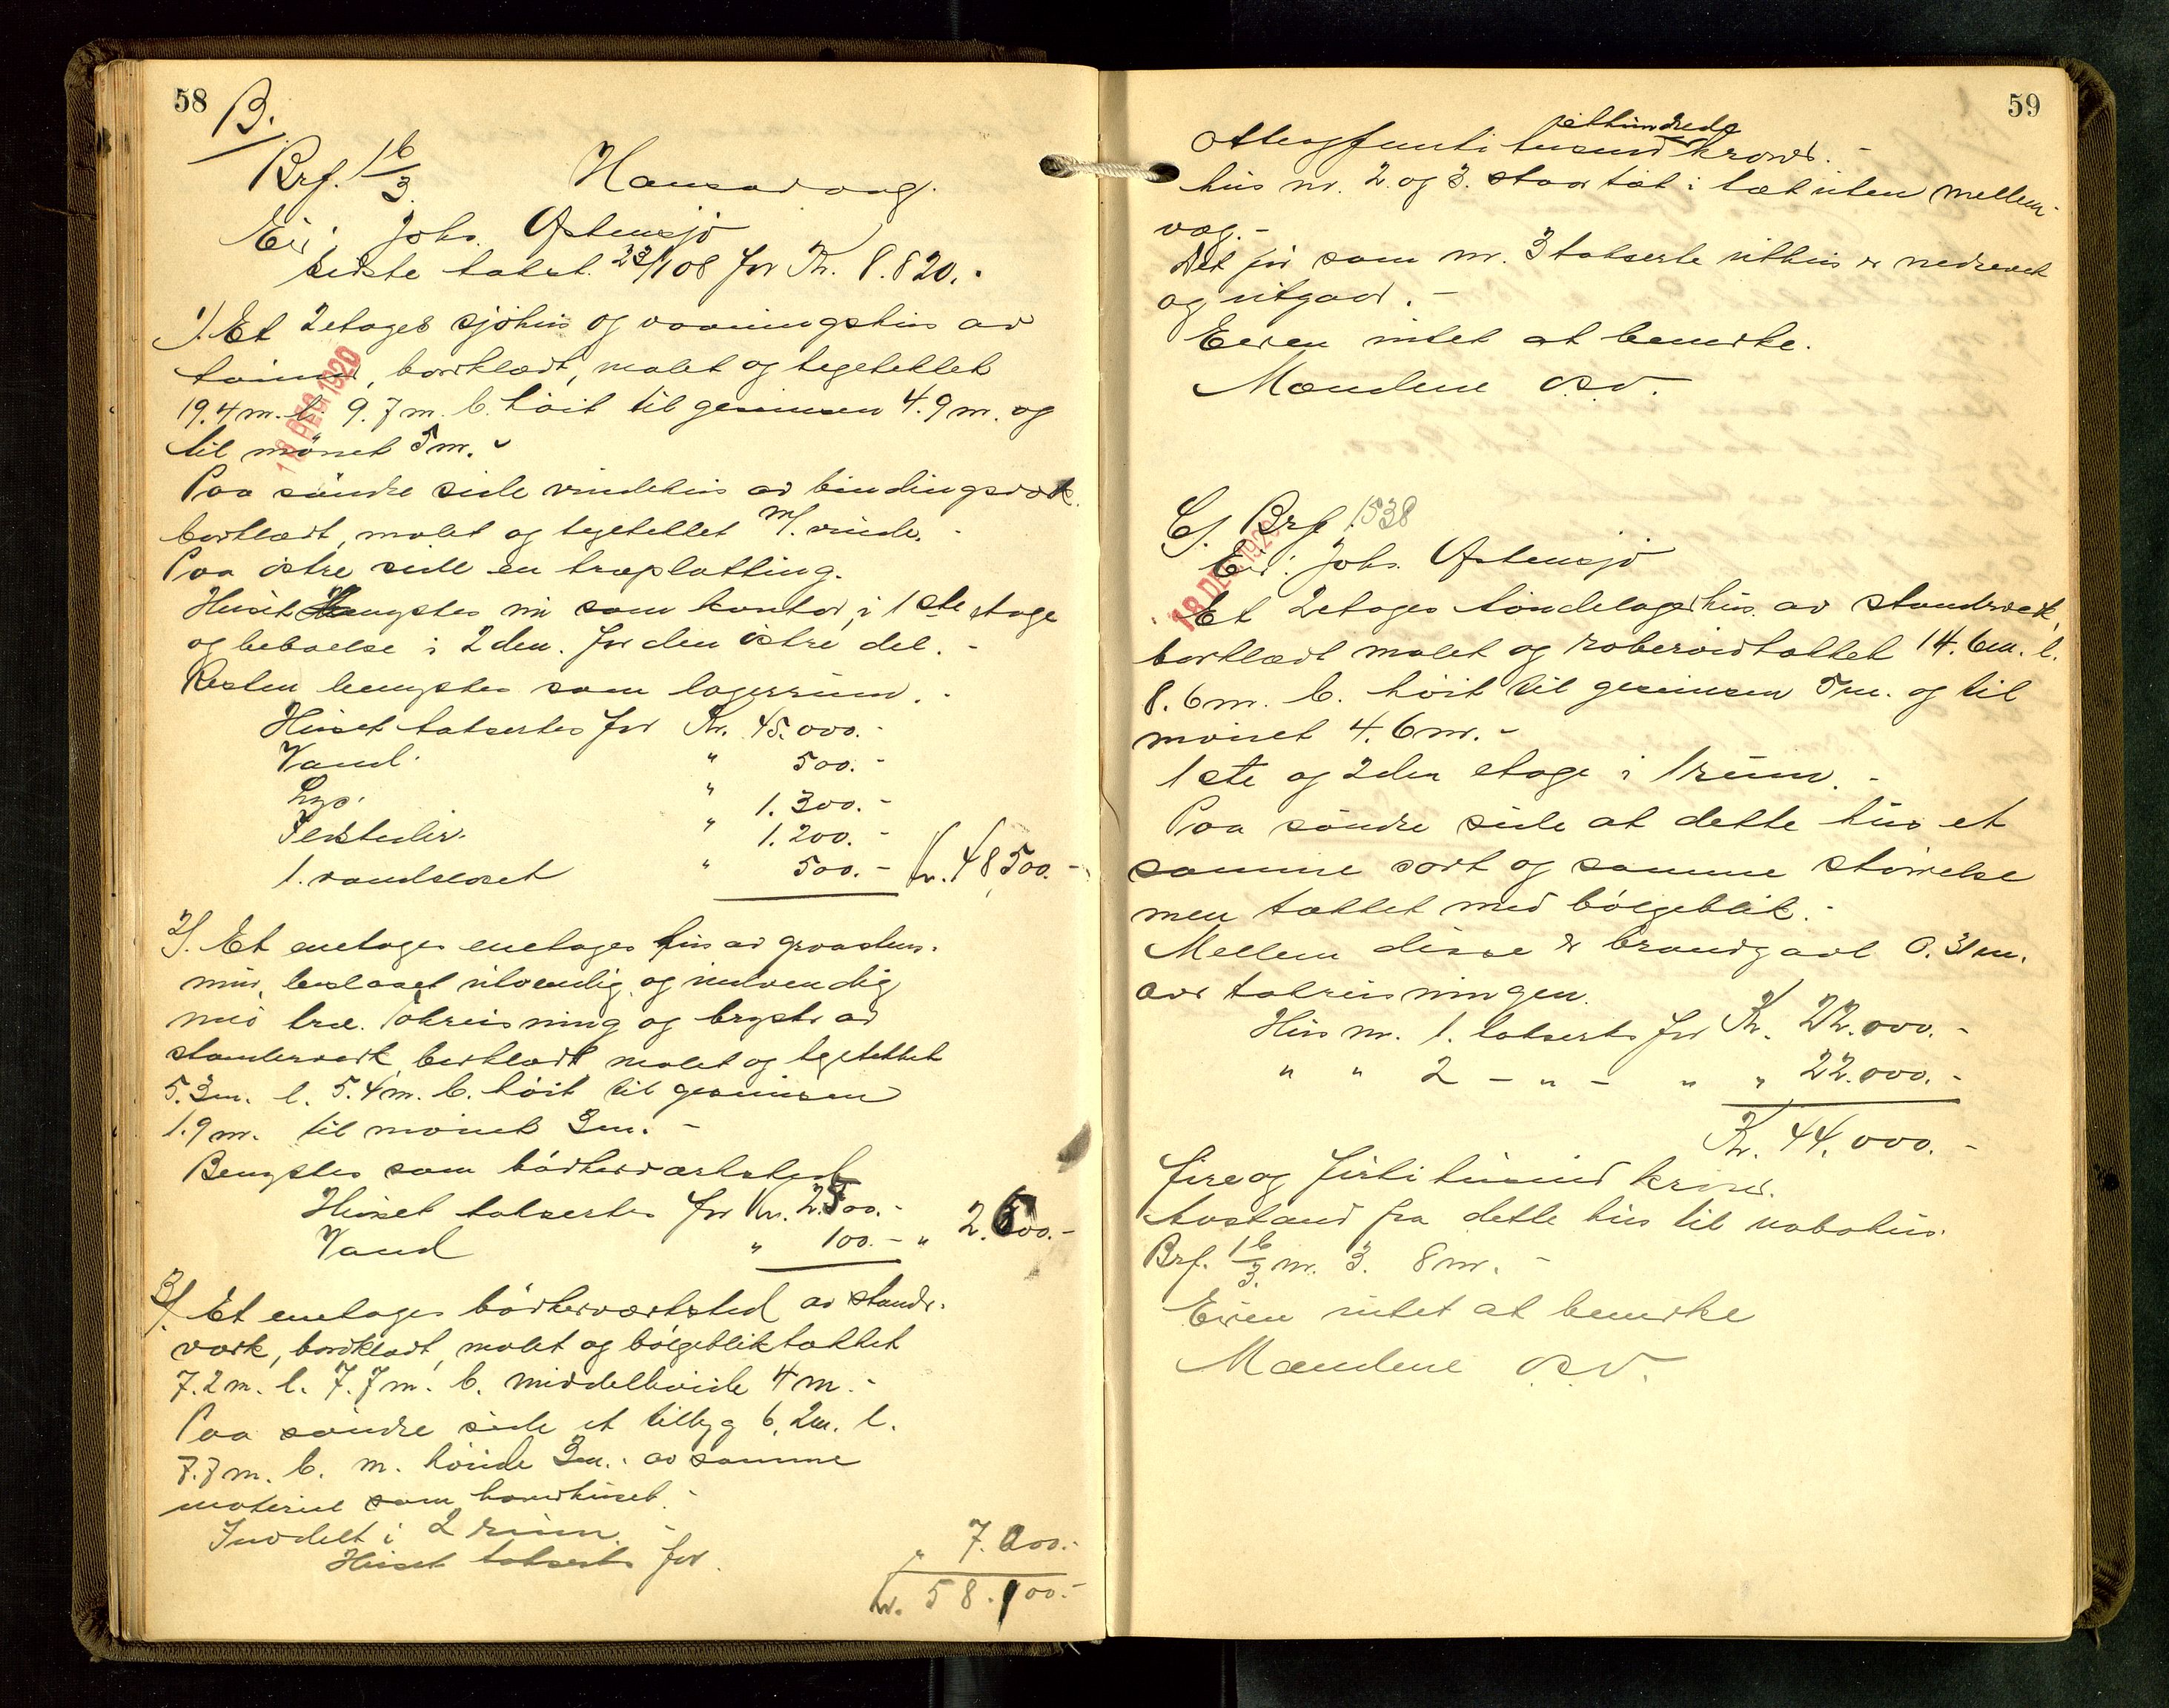 58
B.
Brf. 16/3. Hansavaag.
Eier; Johs. Østensjø
sidste takst. 23/1 08 for Kr. 8.820.-
1). Et 2etages sjøhus og vaaningshus av
tømmer, bordklædt, malet og tegeltektet
19.4 m. l. 9.7 m. b. høit til gesimsen 4.9 m. og
til mønet 5 m.-
18 DEC 1920
Paa søndre side vindehus av bindingsverk
bordklædt, malet og tegltektet m/. vinde. -
Paa østre side en træplatting.
Huset benyttes nu som kontor, i 1ste etage
og beboelse i 2den. for den østre del. -
Resten benyttes som lagerrum. -
Huset takseres for Kr. 45.000.-
Vand. " 500.-
Lys. " 1.300.-
Ildsteder. " 1.200.-
1. vandkloset " 500.- Kr. 48,500.-
2). Et enetages enetages hus av graastens-
mur, beslaaet utvendig og indvendig
med træ. Takreisning og bryst av
stenderverk bordklædt malet og tegltektet
5.3m. l. 5.4 m. b. høit til gesimsen
1.9 m. til mønet 3m. -
Benyttes som bødkerværksted
Huset takseres for Kr. 2.500.-
Vand " 100.- " 2.600.-
3/. Et enetages bødkerværksted av stender-
værk, bordklædt, malet og bølgebliktækket
7.2 m. l. 7.7 m. b. middelhøide 4 m.-
Paa søndre side et tilbyg 6.2m. l.
7.7 m. b. m. høide 3m. av samme
materiel som hovedhuset.-
Inddelt i 2 rum. -
Huset takseres for. " 7.000.-
Kr. 58.100.-
59
otteogfemti tusend ethundrede kroner. -
hus nr. 2. og 3. staar tæt i tæt uten mellem-
væg.-
Det før som nr. 3 takserte uthus er nedrevet
og utgaar.-
Eieren intet at bemerke.
Mændene o.s.v.
C/. Brf. 1538
18 DEC 1920
Eier: Johs. Østensjø
Et 2etages tøndelagerhus av stenderverk,
bordklædt malet og ruberoidtækket 14.6m. l.
8.6m. b. høit til gesimsen 5m. og til
mønet 4.6m.-
1ste og 2den etage i 1 rum. -
Paa søndre side at dette hus et
samme sort og samme størrelse
men tækket med bølgeblik.-
Mellem disse er brandgavl 0.31m.
over takreisningen.
Hus nr. 1. takseres for Kr. 22.000.-
" " 2 - " - " " 22.000.-
Kr. 44.000.-
fire og førti tusind kroner.
Avstand fra dette hus til nabohus.
Brf. 16/3. nr. 3. 8m. -
Eieren intet at bemerke
Mændene o.s.v.